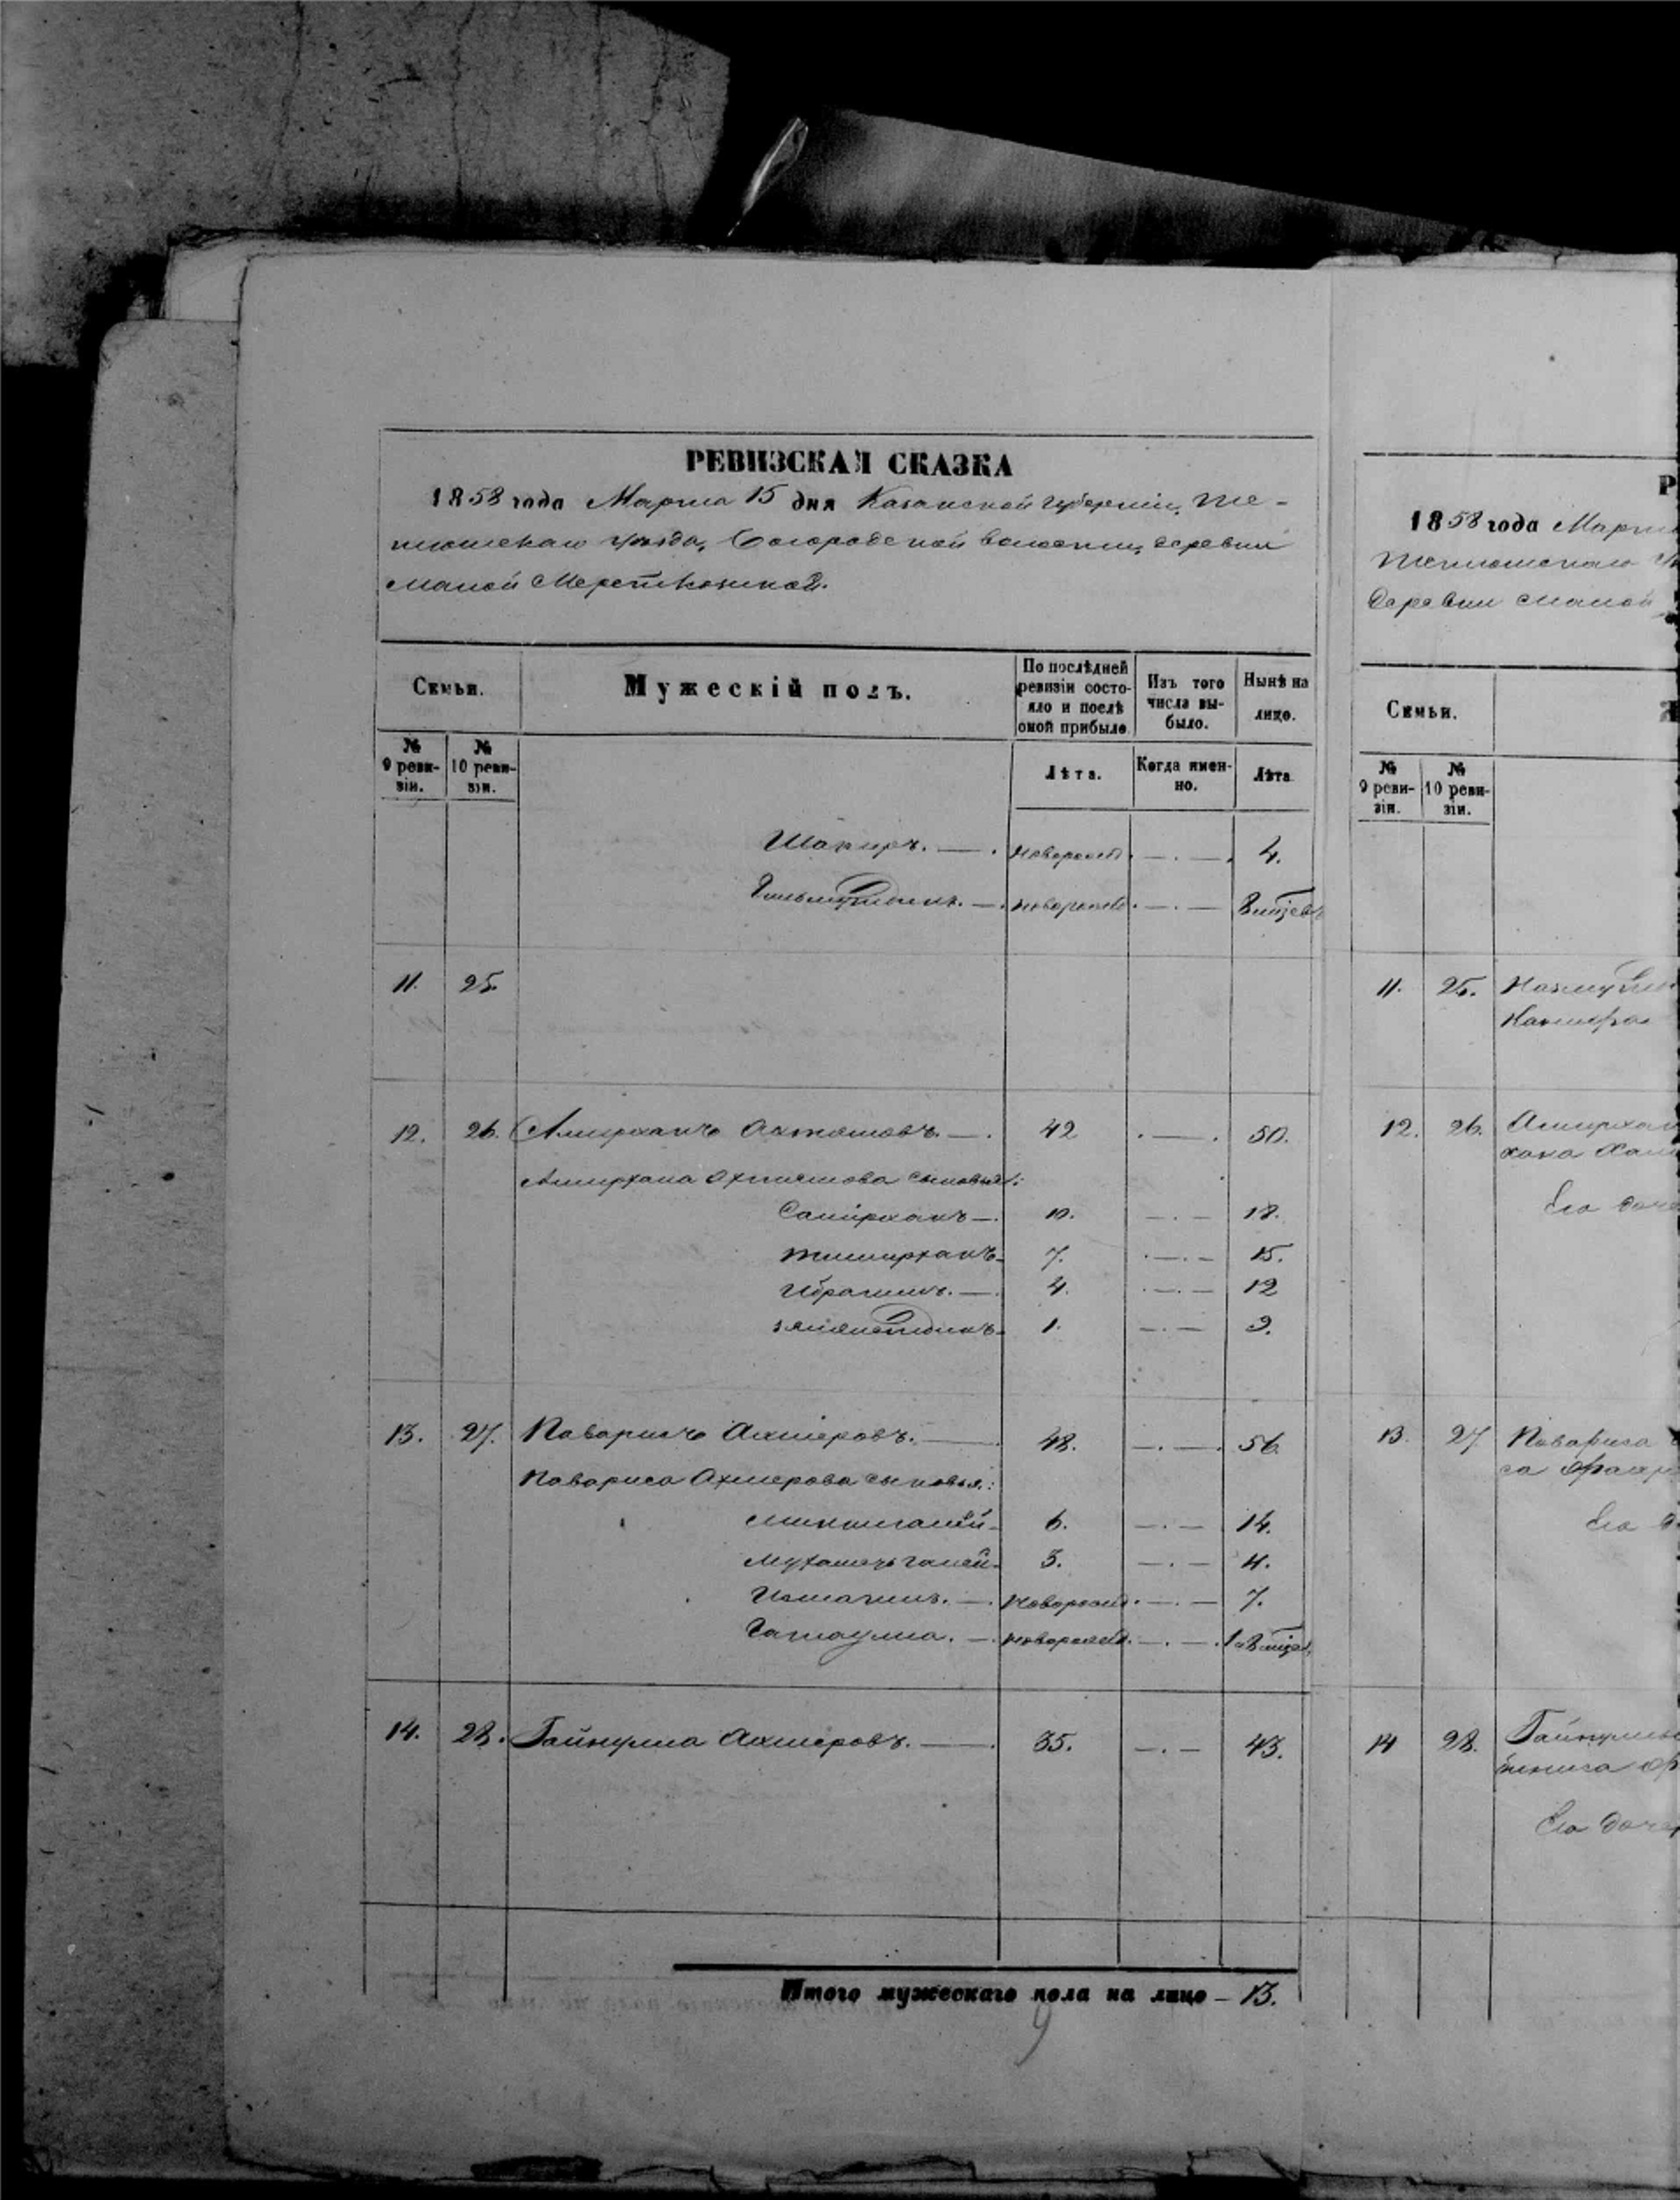 РЕВИЗСКАЯ СКАЗКА
1858 года Марта 15 дня Казанской губерніи, Те-
тюшскаго уѣзда, Богородской волости, деревни
Малой Мереткожиной.
Семьи.
Мужескій полъ.
По послѣдней ревизіи состо-яло и послѣ оной прибыло.
Изъ того числа вы-было.
Нынѣ на лицо.
№ 9 реви-зіи.
№ 10 реви-зіи.
Лѣта.
Когда имен-но.
Лѣта.
Шакиръ. новорожд. 4.
новорожд.
11. 25.
12. 26. Амирханъ Ахтямовъ. 42 50.
Амирхана Ахтямова сыновья:
Самирханъ 10. 18.
Тимирханъ 7. 15.
Ибрагимъ. 4. 12
1. 9.
13. 27. Наварисъ Ахмеровъ. 48. 56.
Навариса Ахмерова сыновья:
Миннигалѣй 6. 14.
Мухаметьгалей 3. 4.
Исмагилъ. новорожд. 7.
Гатаулла. новорожд.
14. 28. Гайнулла Ахмеровъ. 35. 43.
Итого мужескаго пола на лицо 13.
Р
1858 года Март
Тетюшскаго
деревни Малой
Семьи.
№ 9 реви-зіи.
№ 10 реви-зіи.
11. 25.
12. 26. Амирхан
хана
Его доче
13. 27 Навариса
са
Его
14 28. Гайнуллы
Его дочер